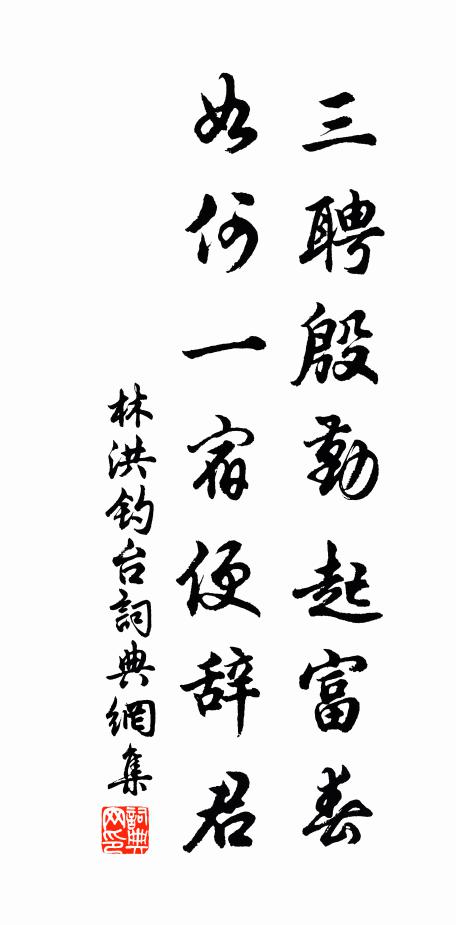 三聘殷勤起富春
如何一宿便辞君
林洪钓台詞典網集
詞典網印